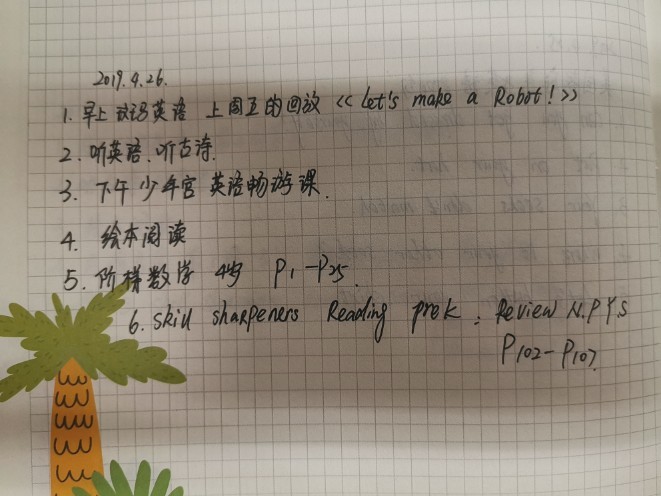 2019.4.26.
1. 早上 叽里呱啦英语 上周五的回放 《Let's make a Robot!》
2. 听英语.听古诗.
3. 下午 少年宫 英语畅游课.
4. 绘本阅读
5. 阶梯数学 4岁 P1-P25.
6. skill sharpeners Reading prek : Review N.P.Y.S
P102-P107.